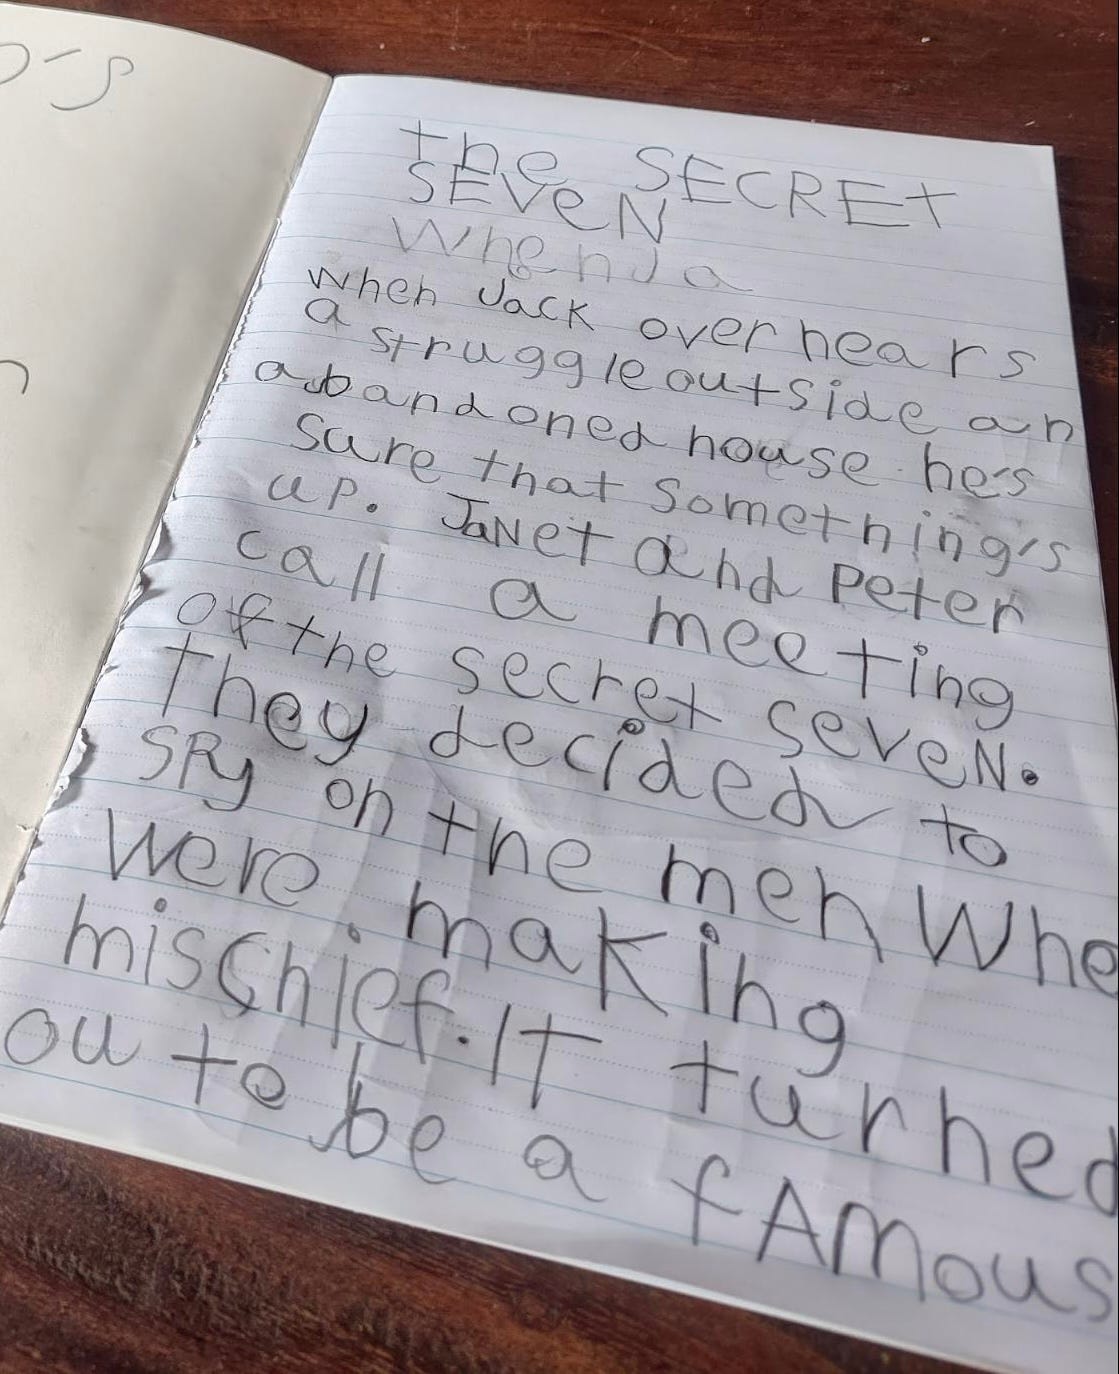 the SECRET
SEVeN
When Ja
when Jack overhears
a struggle outside an
abandoned house he's
sure that something's
up. JaNet and Peter
call a meeting
of the secret seveN.
They decided to
SPy on the men Who
were making
mischief. IT turned
ou to be a fAmous